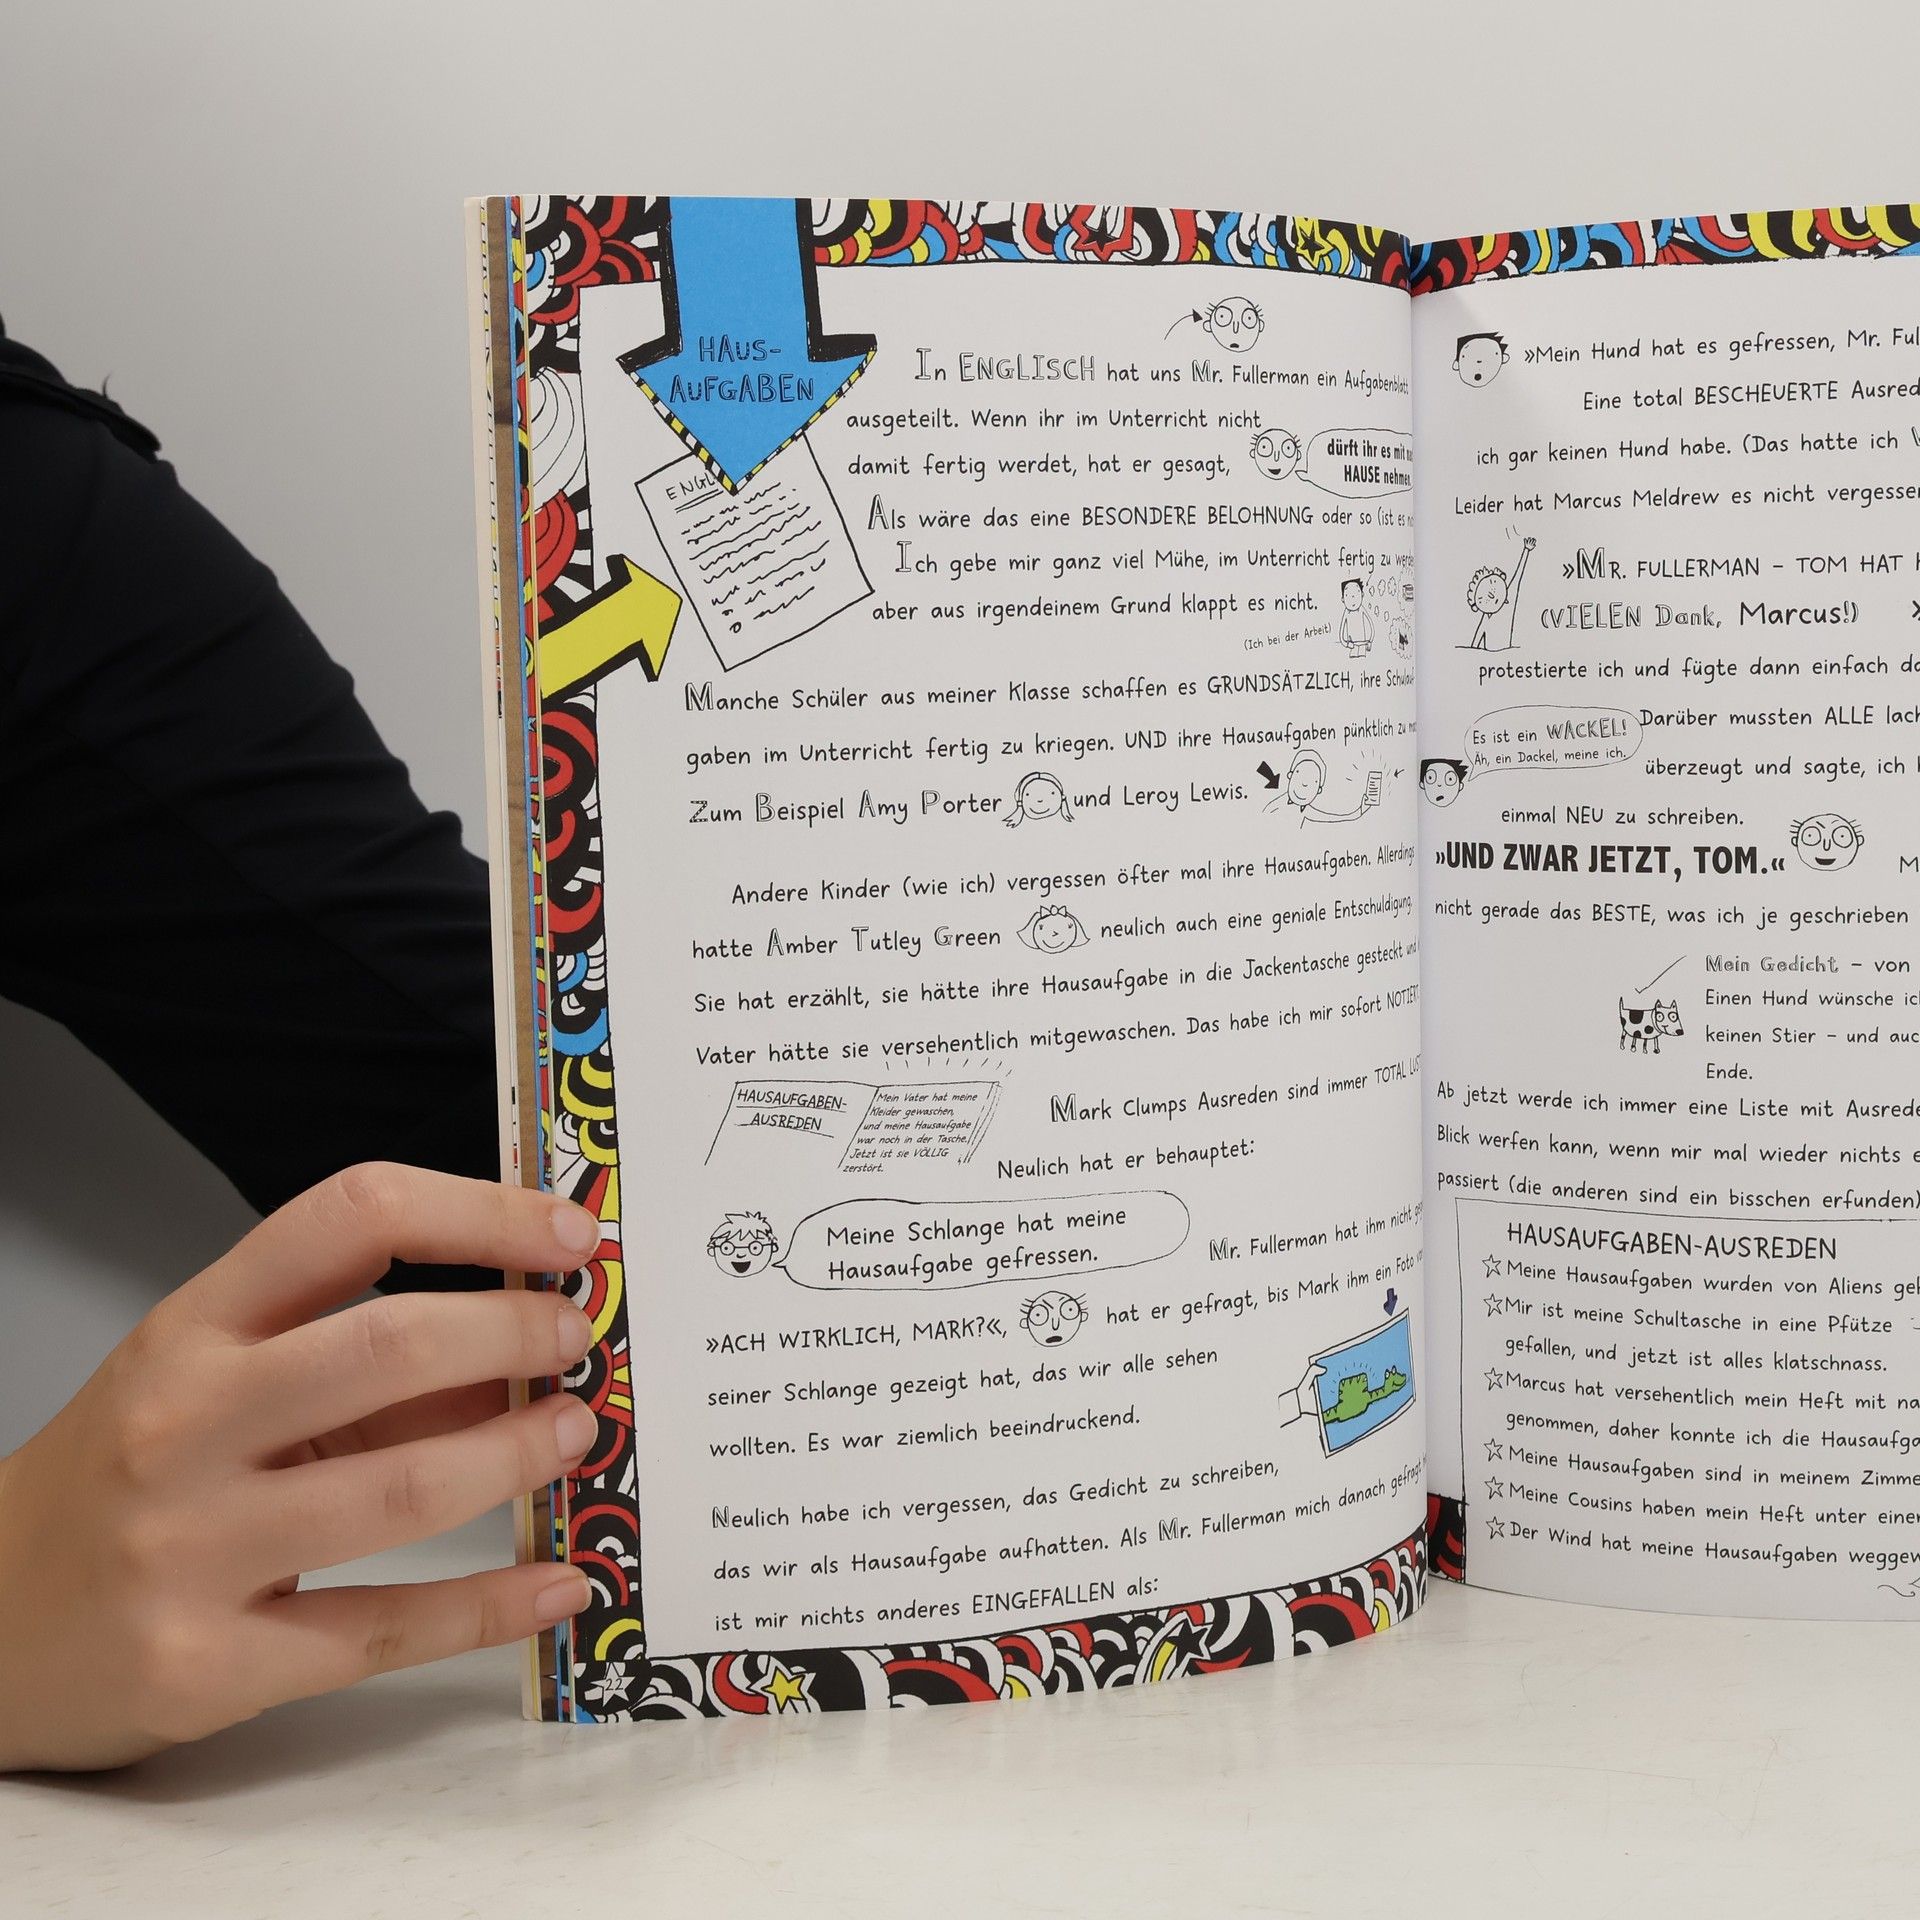 HAUS-
AUFGABEN
ENGL
In ENGLISCH hat uns Mr. Fullerman ein Aufgabenblatt
ausgeteilt. Wenn ihr im Unterricht nicht
damit fertig werdet, hat er gesagt,
dürft ihr es mit
HAUSE nehmen.
Als wäre das eine BESONDERE BELOHNUNG oder so (ist es
Ich gebe mir ganz viel Mühe, im Unterricht fertig zu
aber aus irgendeinem Grund klappt es nicht.
(Ich bei der Arbeit)
Manche Schüler aus meiner Klasse schaffen es GRUNDSÄTZLICH, ihre
gaben im Unterricht fertig zu kriegen. UND ihre Hausaufgaben pünktlich zu
Zum Beispiel Amy Porter und Leroy Lewis.
Andere Kinder (wie ich) vergessen öfter mal ihre Hausaufgaben. Allerdings
hatte Amber Tutley Green neulich auch eine geniale Entschuldigung.
Sie hat erzählt, sie hätte ihre Hausaufgabe in die Jackentasche gesteckt und
Vater hätte sie versehentlich mitgewaschen. Das habe ich mir sofort
HAUSAUFGABEN-
AUSREDEN
Mein Vater hat meine
Kleider gewaschen,
und meine Hausaufgabe
war noch in der Tasche.
Jetzt ist sie VÖLLIG
zerstört.
Mark Clumps Ausreden sind immer TOTAL
Neulich hat er behauptet:
Meine Schlange hat meine
Hausaufgabe gefressen.
Mr. Fullerman hat ihm nicht
»ACH WIRKLICH, MARK?«, hat er gefragt, bis Mark ihm ein Foto
seiner Schlange gezeigt hat, das wir alle sehen
wollten. Es war ziemlich beeindruckend.
Neulich habe ich vergessen, das Gedicht zu schreiben,
das wir als Hausaufgabe aufhatten. Als Mr. Fullerman mich danach gefragt
ist mir nichts anderes EINGEFALLEN als:
22
»Mein Hund hat es gefressen, Mr. Ful
Eine total BESCHEUERTE Ausred
ich gar keinen Hund habe. (Das hatte ich
Leider hat Marcus Meldrew es nicht vergessen
»MR. FULLERMAN – TOM HAT
(VIELEN Dank, Marcus!)
protestierte ich und fügte dann einfach
Es ist ein WACKEL!
Äh, ein Dackel, meine ich.
Darüber mussten ALLE lach
überzeugt und sagte, ich
einmal NEU zu schreiben.
»UND ZWAR JETZT, TOM.«
M
nicht gerade das BESTE, was ich je geschrieben
Mein Gedicht – von
Einen Hund wünsche ich
keinen Stier – und auc
Ende.
Ab jetzt werde ich immer eine Liste mit Ausrede
Blick werfen kann, wenn mir mal wieder nichts e
passiert (die anderen sind ein bisschen erfunden)
HAUSAUFGABEN-AUSREDEN
☆Meine Hausaufgaben wurden von Aliens
☆Mir ist meine Schultasche in eine Pfütze
gefallen, und jetzt ist alles klatschnass.
☆Marcus hat versehentlich mein Heft mit na
genommen, daher konnte ich die Hausaufga
☆Meine Hausaufgaben sind in meinem Zimme
☆Meine Cousins haben mein Heft unter einer
☆Der Wind hat meine Hausaufgaben weggew